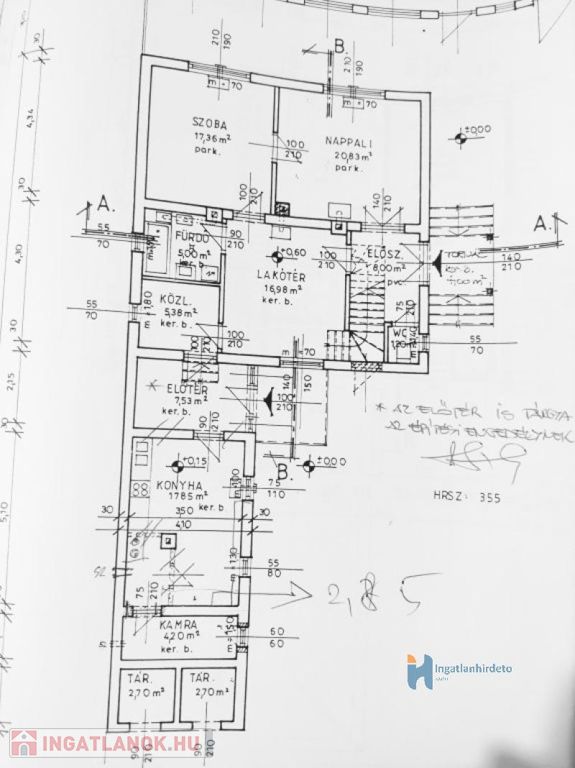 210
190
B.
210
190
m 70
m 70
SZOBA
17,36 m²
park.
NAPPALI
20,83 m²
park.
100
210
±0,00
4,34
30
A.
A.
55
70
100
210
140
210
FÜRDŐ
5,00 m²
ker. b.
90
210
+0,60
LAKÓTÉR
16,98 m²
ker. b.
100
210
ELŐSZ.
8,00 m²
pvc
140
210
4,30
55
70
m 180
KÖZL.
5,38 m²
ker. b.
75
210
WC
1,20 m²
m 140
55
70
30
100
210
100
210
m 70
140
150
2,15
* ELŐTÉR
7,53 m²
ker. b.
100
210
* AZ ELŐTÉR IS TÁRGYA
AZ ÉPÍTÉSI ENGEDÉLYNEK
30
90
210
B.
±0,00
+0,15
KONYHA
17,85 m²
ker. b.
m 100
75
110
HRSZ: 355
30
350
30
410
5,10
130
55
80
75
210
2,85
KAMRA
4,20 m²
ker. b.
m 150
60
60
TÁR.
2,70 m²
TÁR.
2,70 m²
Ingatlanhirdeto
90
210
90
210
INGATLANOK.HU